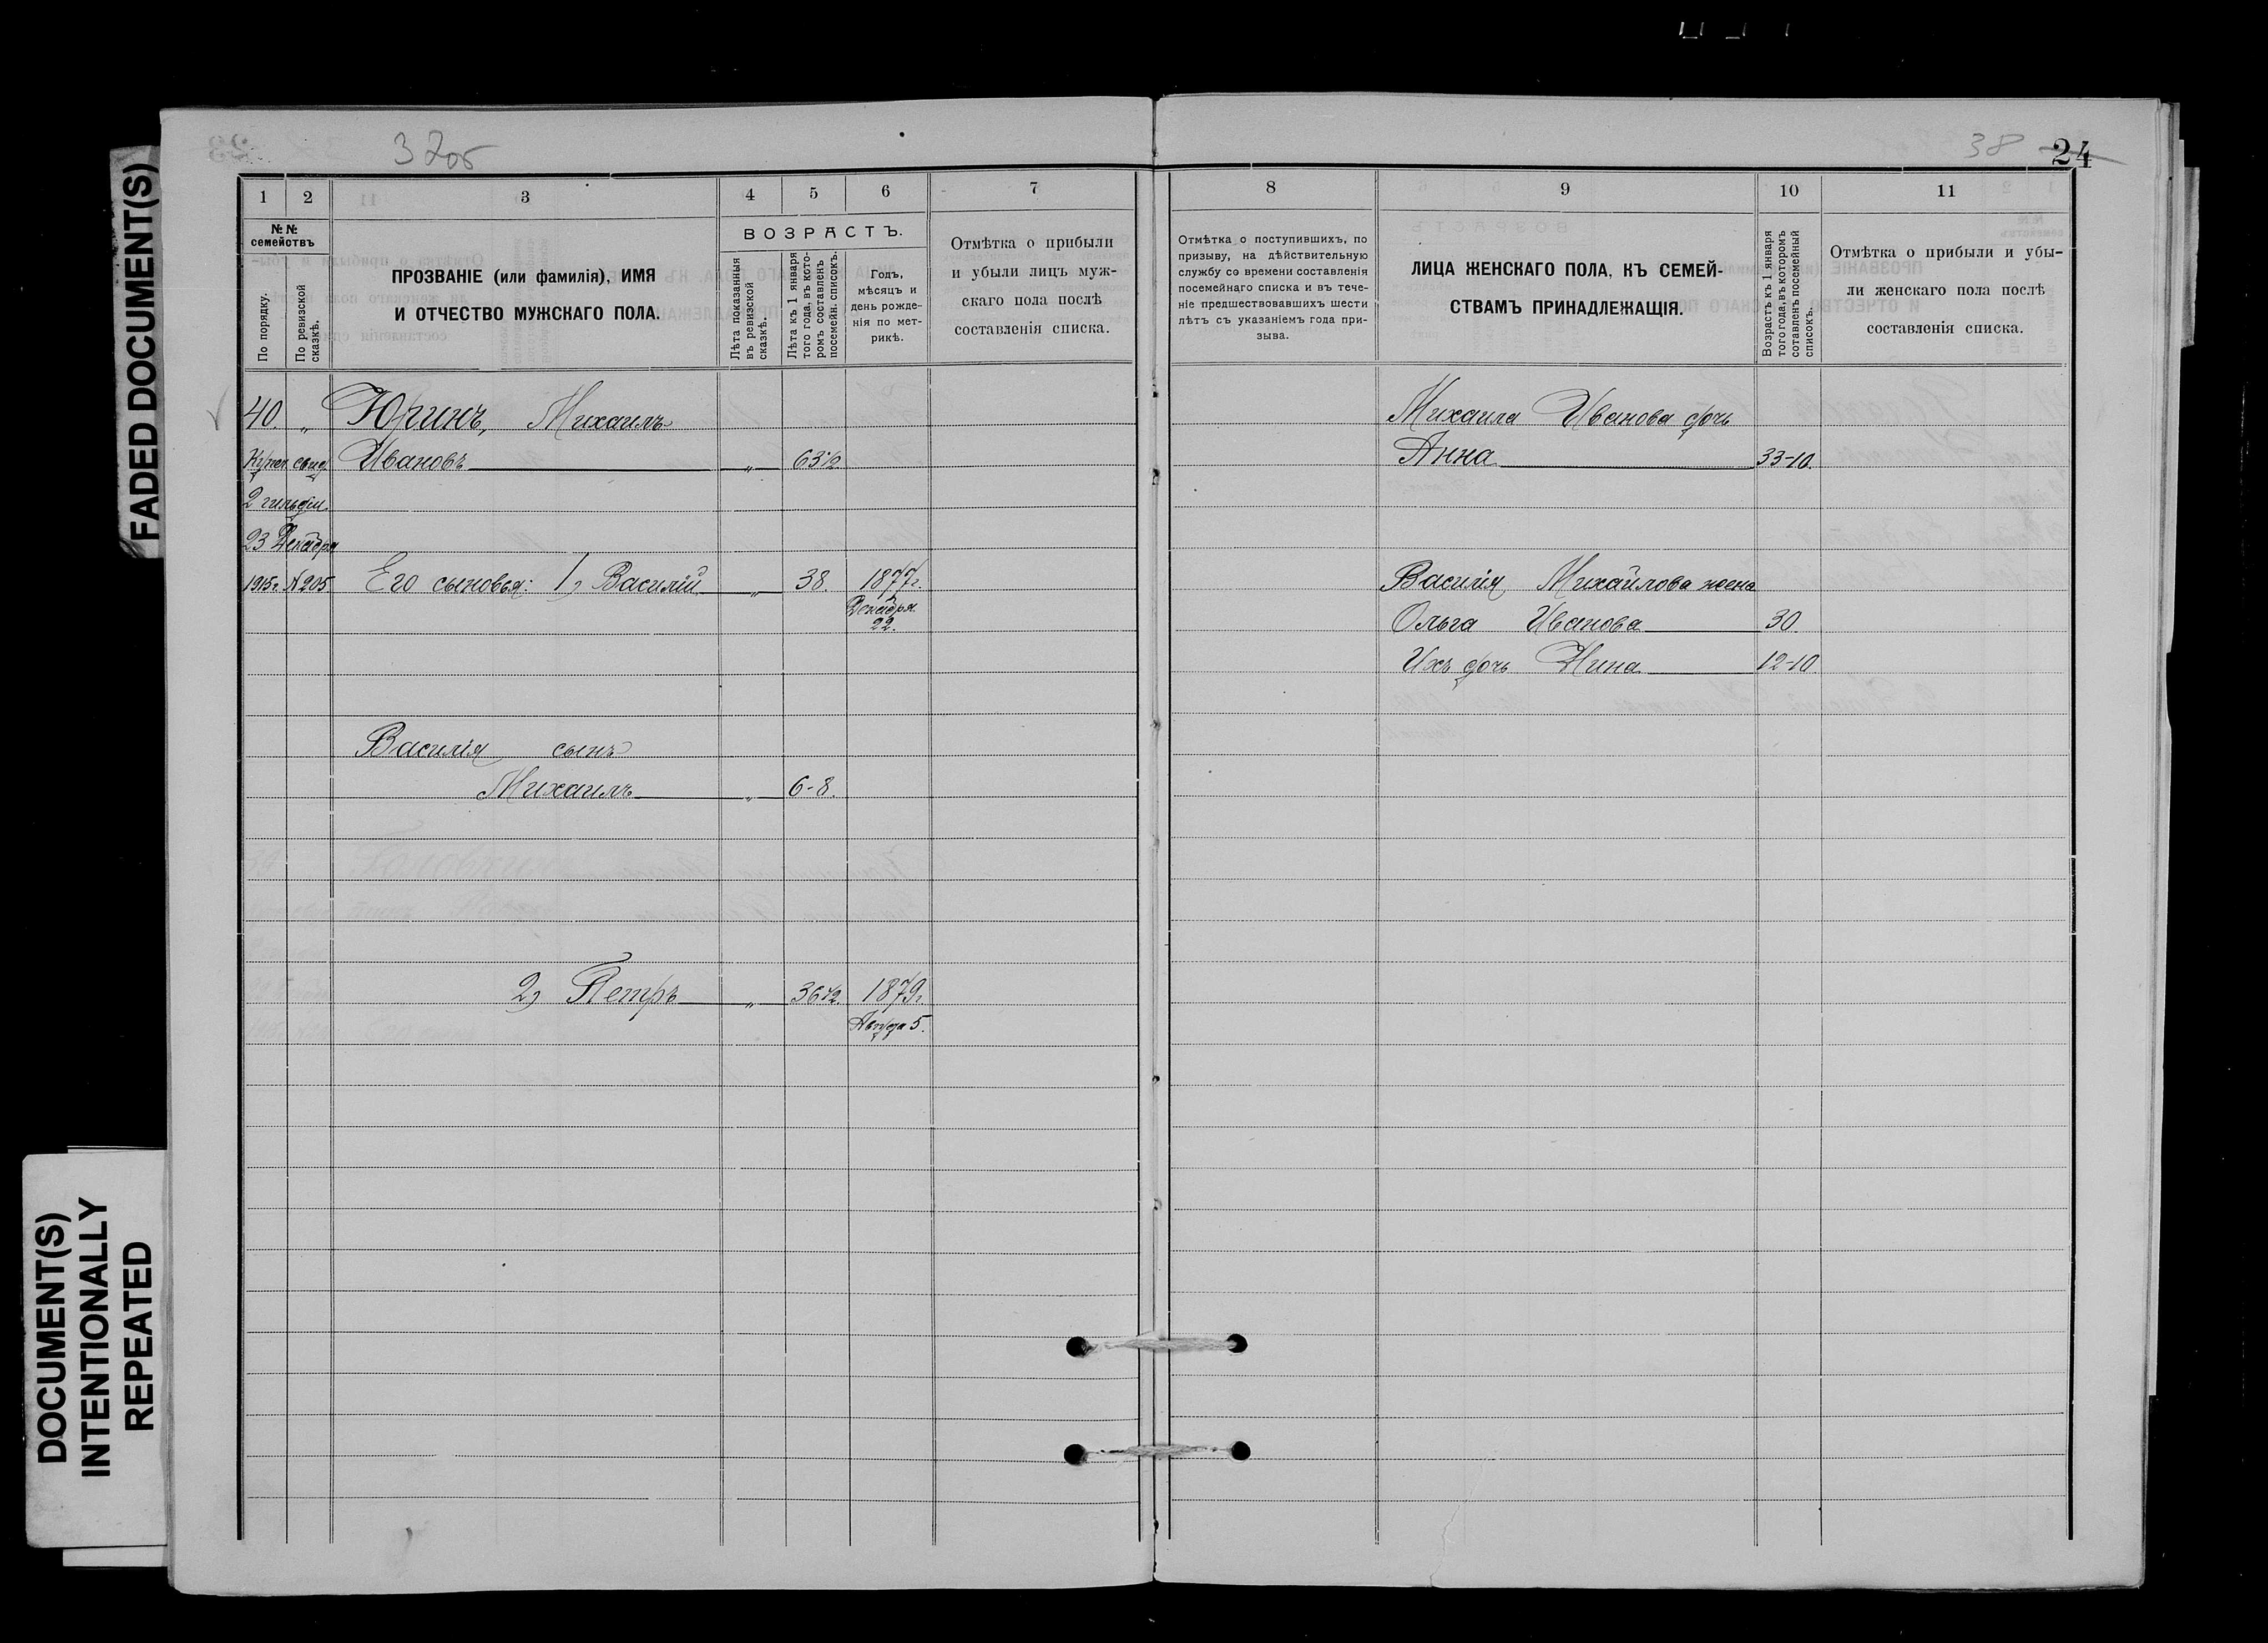 FADED DOCUMENT(S)
DOCUMENT(S)
INTENTIONALLY
REPEATED
37об
1 2 3 4 5 6 7
№№ семействъ
По порядку.
По ревизской сказкѣ.
ПРОЗВАНІЕ (или фамилія), ИМЯ
И ОТЧЕСТВО МУЖСКАГО ПОЛА.
ВОЗРАСТЪ.
Лѣта показанныя
въ ревизской
сказкѣ.
Лѣта къ 1 января
того года, въ кото-
ромъ составленъ
посемейн. списокъ.
Годъ,
мѣсяцъ и
день рожде-
нія по мет-
рикѣ.
Отмѣтка о прибыли
и убыли лицъ муж-
скаго пола послѣ
составленія списка.
40. „ Юринъ, Михаилъ
Купеч свид. Ивановъ „
2 гильдіи.
23 Декабря
1915г. №205. Его сыновья: 1) Василій „ 38. 1877г.
Декабря
22.
Василія сынъ
Михаилъ „ 6-8.
2) Петръ „ 1879г.
5.
38 24
8 9 10 11
Отмѣтка о поступившихъ, по
призыву, на дѣйствительную
службу со времени составленія
посемейнаго списка и въ тече-
ніе предшествовавшихъ шести
лѣтъ съ указаніемъ года при-
зыва.
ЛИЦА ЖЕНСКАГО ПОЛА, КЪ СЕМЕЙ-
СТВАМЪ ПРИНАДЛЕЖАЩІЯ.
Возрастъ къ 1 января
того года, въ которомъ
составленъ посемейный
списокъ.
Отмѣтка о прибыли и убы-
ли женскаго пола послѣ
составленія списка.
Михаила Иванова дочь
Анна 33-10.
Василія Михайлова жена
Ольга Иванова 30.
Ихъ дочь Нина 12-10.